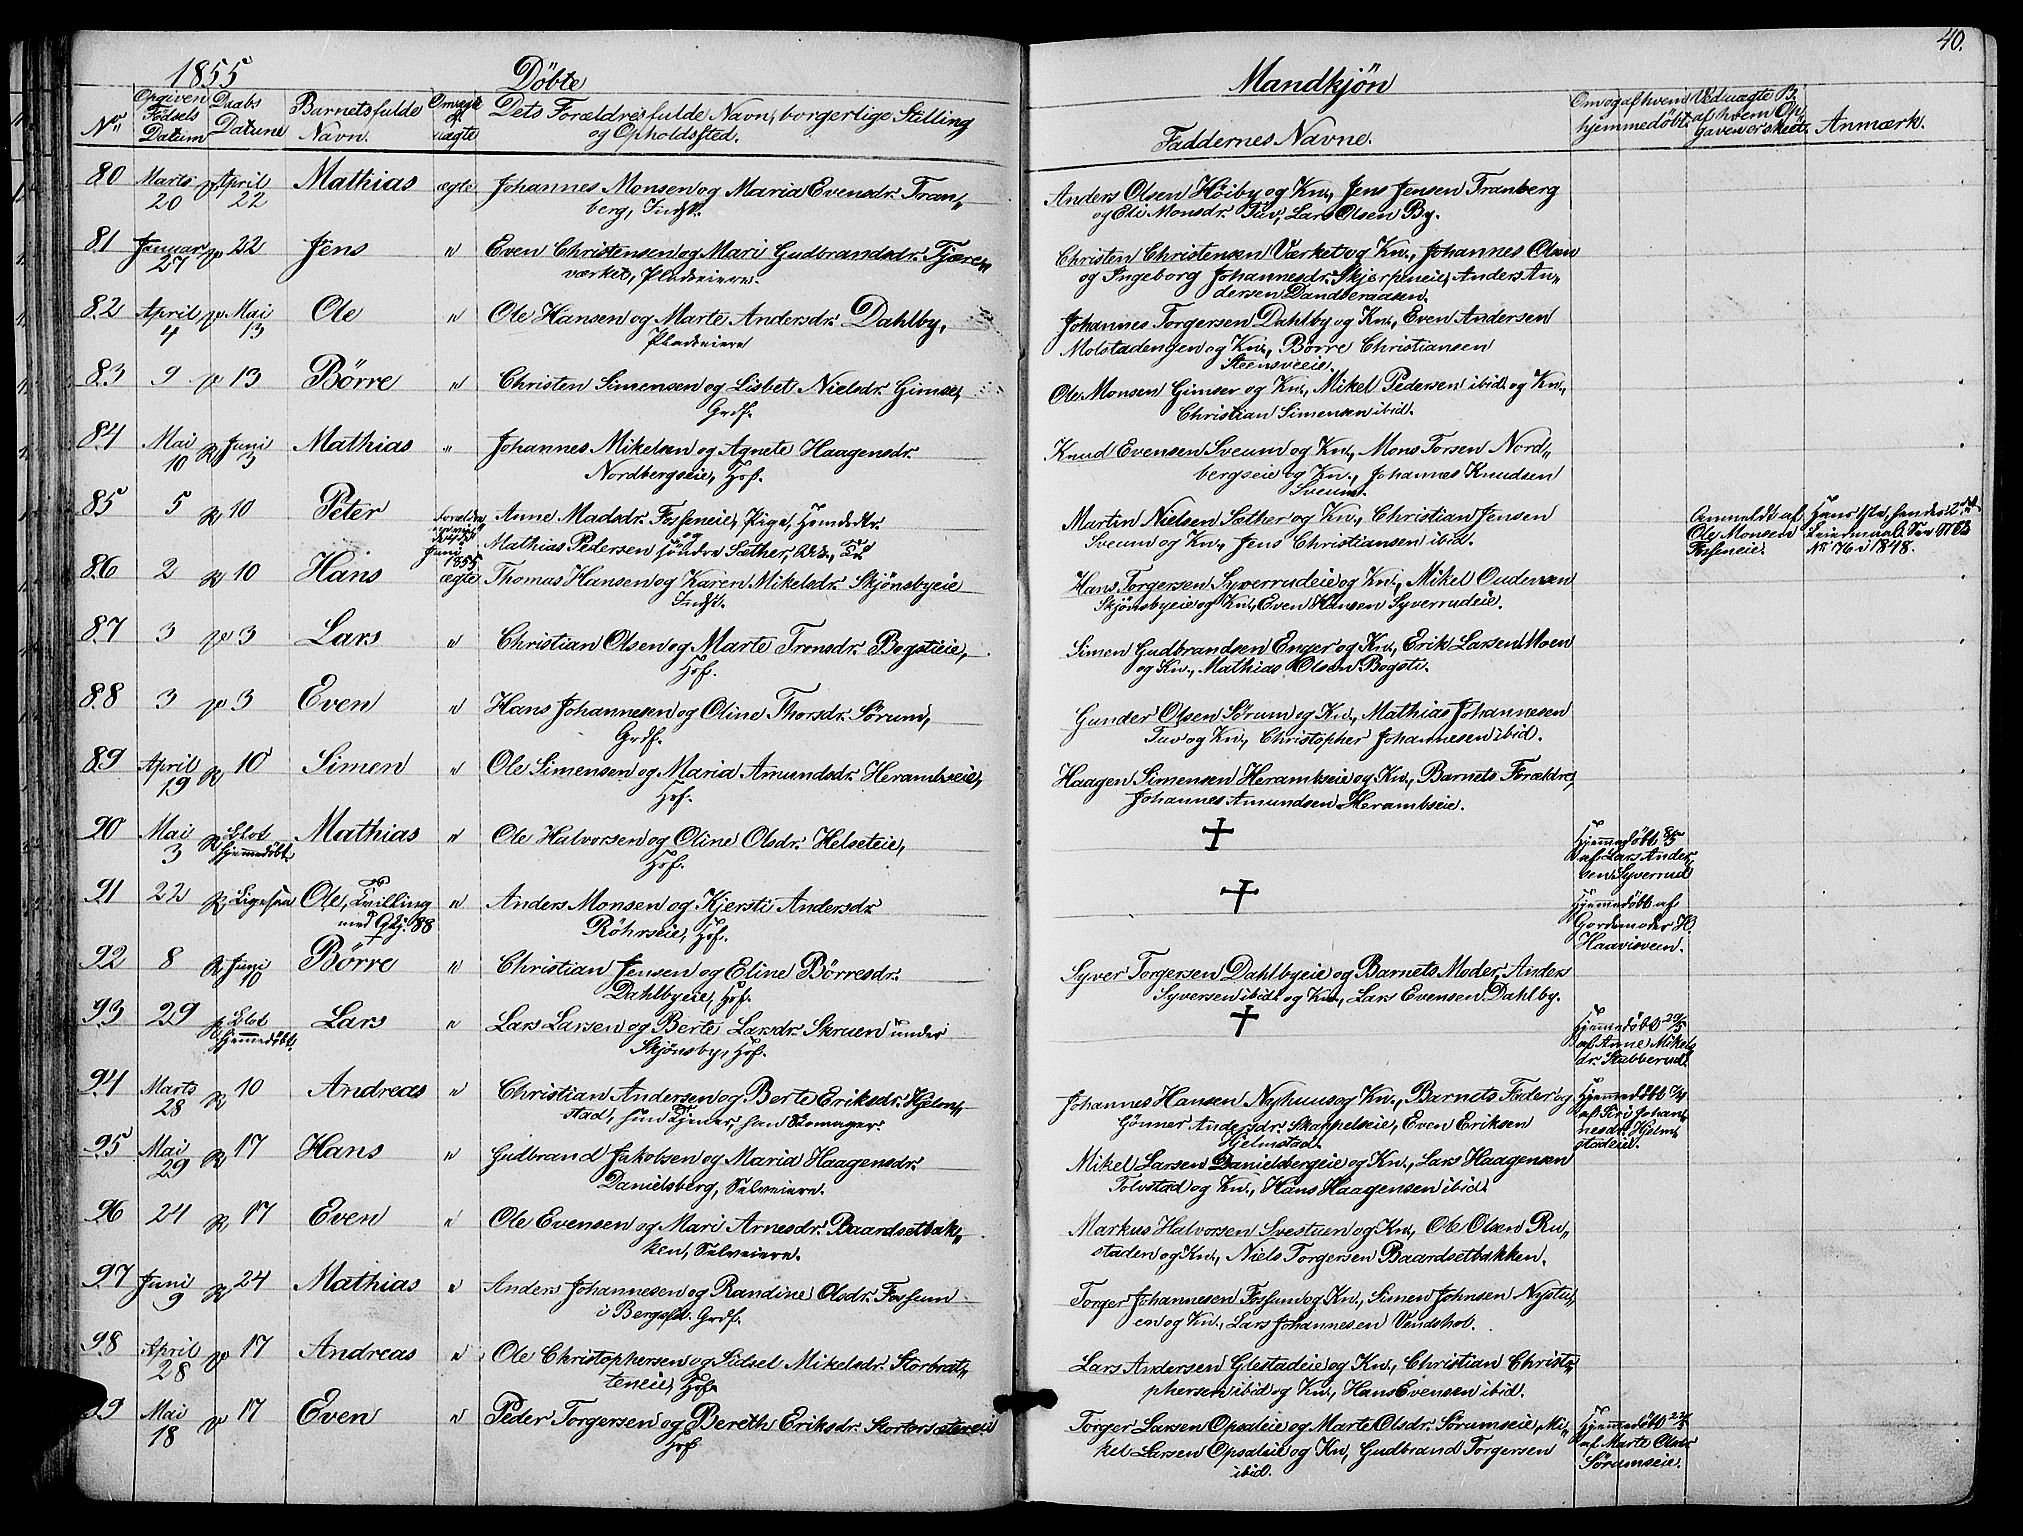 40.
1855 Döbte Mandkjön
No. Opgiven Födsels Datum Daabs Datum Barnets fulde Navn. Om ægte el. uægte Dets Forældres fulde Navn, borgerlige Stilling og Opholdssted. Faddernes Navne. Om og af hvem hjemmedöbt. Ved uægte B. af hvem Opgaven er skeet. Anmærk.
80 Marts 20 April 22 Mathias ægte Johannes Monsen og Maria Evensdr. Tran„
berg, Indst.
Anders Olsen Höiby og Kn., Jens Jensen Tranberg
og Eli Monsdr. Tuv, Lars Olsen By.
81 Januar 27 22 Jens " Even Christensen og Mari Gudbrandsdr. Tjære„
værket, Pladseiere.
Christen Christensen Værket og Kn., Johannes Olsen
og Ingeborg Johannesdr. Skjerpeneie, Anders An„
dersen Dandseraasen.
82 April 4 Mai 13 Ole " Ole Hansen og Marte Andersdr. Dahlby,
Pladseiere
Johannes Torgersen Dahlby og Kn., Even Andersen
Molstadengen og Kn., Börre Christiansen
Steensveeie.
83 9 13 Börre " Christen Simensen og Lisbet Nielsdr. Gimse,
Grdf.
Ole Monsen Gimser og Kn., Mikel Pedersen ibid. og Kn.,
Christian Simensen ibid.
84 Mai 10 Juni 3 Mathias " Johannes Mikelsen og Agnete Haagensdr.
Nordbergseie, Hof.
Knud Evensen Sveum og Kn., Mons Torsen Nord„
bergseie og Kn., Johannes Knudsen
Sveum.
85 5 10 Peter Anne Madsdr. Fosseneie, Pige,
og
Mathias Pedersen söndre Sæther,
Martin Nielsen Sæther og Kn., Christian Jensen
Sveum og Kn., Jens Christiansen ibid.
Anmeldt af
Ole Monsen
Fosseneie.
Hans 1ste, hendes 2det
Leiermaal.
No. 76 i 1848.
86 2 10 Hans ægte Thomas Hansen og Karen Mikelsdr. Skjönsbyeie
Indst.
Hans Torgersen Syverrudeie og Kn., Mikel Oudensen
Skjönsbyeie og Kn., Even Hansen Syverrudeie.
87 3 3 Lars " Christian Olsen og Marte Tronsdr. Bogstieie,
Hof.
Simen Gudbrandsen Enger og Kn., Erik Larsen Moen
og Kn., Mathias Olsen Bogsti.
88 3 3 Even " Hans Johannesen og Oline Thorsdr. Sörum,
Grdf.
Gunder Olsen Sörum og Kn., Mathias Johannesen
Tuv og Kn., Christopher Johannesen ibid.
89 April 19 10 Simen " Ole Simensen og Maria Amundsdr. Herambseie,
Hof.
Haagen Simensen Herambseie og Kn., Barnets Forældre,
Johannes Amundsen Herambseie.
90 Mai 3 Blot hjemmedöbt. Mathias " Ole Halvorsen og Oline Olsdr. Helseteie,
Hof.
Hjemmedöbt 8/5
af Lars Ander„
sen Syverrud
91 22 Ligesaa Ole, Tvilling
med Qkj. 88
" Anders Monsen og Kjersti Andersdr.
Röhrseie, Hof.
Hjemmedöbt af
Gordemoder H.
Haavisveen.
92 8 Juni 10 Börre " Christian Jensen og Eline Börresdr.
Dahlbyeie, Hof.
Syver Torgersen Dahlbyeie og Barnets Moder, Anders
Syversen ibid. og Kn., Lars Evensen Dahlby.
93 29 Blot Hjemmedöbt. Lars " Lars Larsen og Berte Larsdr. Skruen under
Skjönsby, Hof.
Hjemmedöbt 29/5
af Anne Mikels
dr. Stabberud.
94 Marts 28 10 Andreas " Christian Andersen og Berte Eriksdr. Hjelm„
stad, hun Tjener, han Skomager.
Johannes Hansen Nyhuus og Kn., Barnets Fader og
Gönner Andersdr. Skappelseie, Even Eriksen
Hjelmstad.
Hjemmedöbt
af Siri Johan„
nesdr. Hjelm„
stadeie.
95 Mai 29 17 Hans " Gudbrand Jakobsen og Maria Haagensdr.
Danielsberg, Selveiere.
Mikel Larsen Danielsbergeie og Kn., Lars Haagensen
Tolvstad og Kn., Hans Haagensen ibid.
96 24 17 Even " Ole Evensen og Mari Arnesdr. Baardsetbak„
ken, Selveiere.
Markus Halvorsen Svestuen og Kn., Ole Olsen Ru„
staden og Kn., Niels Torgersen Baardsetbakken.
97 Juni 9 24 Mathias " Anders Johannesen og Randine Olsdr. Fossum
i Bergsfd. Grdf.
Torger Johannesen Fossum og Kn., Simen Johnsen Nystu„
en og Kn., Lars Johannesen Vendshol.
98 April 28 17 Andreas " Ole Christophersen og Sidsel Mikelsdr. Storbrat„
teneie, Hof.
Lars Andersen Glestadeie og Kn., Christian Christo„
phersen ibid og Kn., Hans Evensen ibid.
99 Mai 18 17 Even " Peder Torgersen og Bereth Eriksdr. Stortorsætereie
Hof.
Torger Larsen Opsaleie og Marte Olsdr. Sörumseie, Mi„
kel Larsen Opsaleie og Kn., Gudbrand Torgersen
ibid.
Hjemmedöbt
af Marte Olsdr.
Sörumseie.